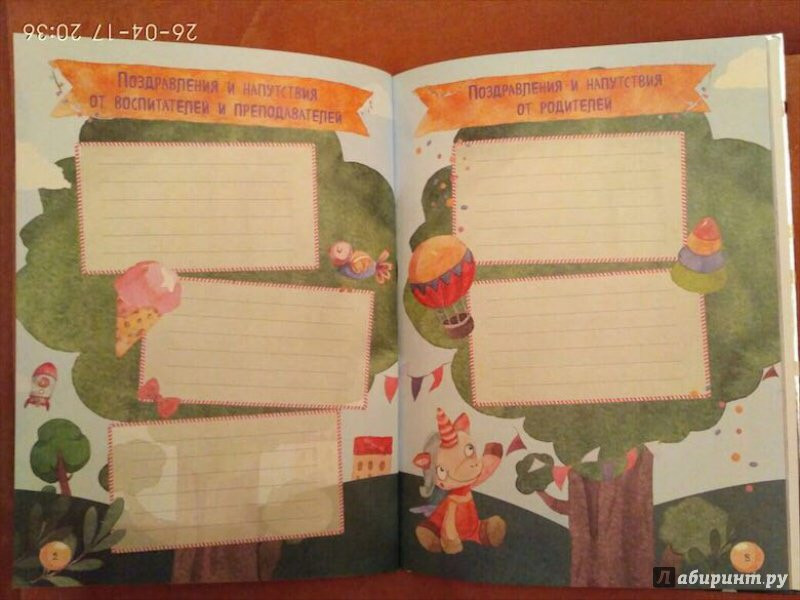 26-04-17 20:36
Поздравления и напутствия
от воспитателей и преподавателей
Поздравления и напутствия
от родителей
5
Лабиринт.ру